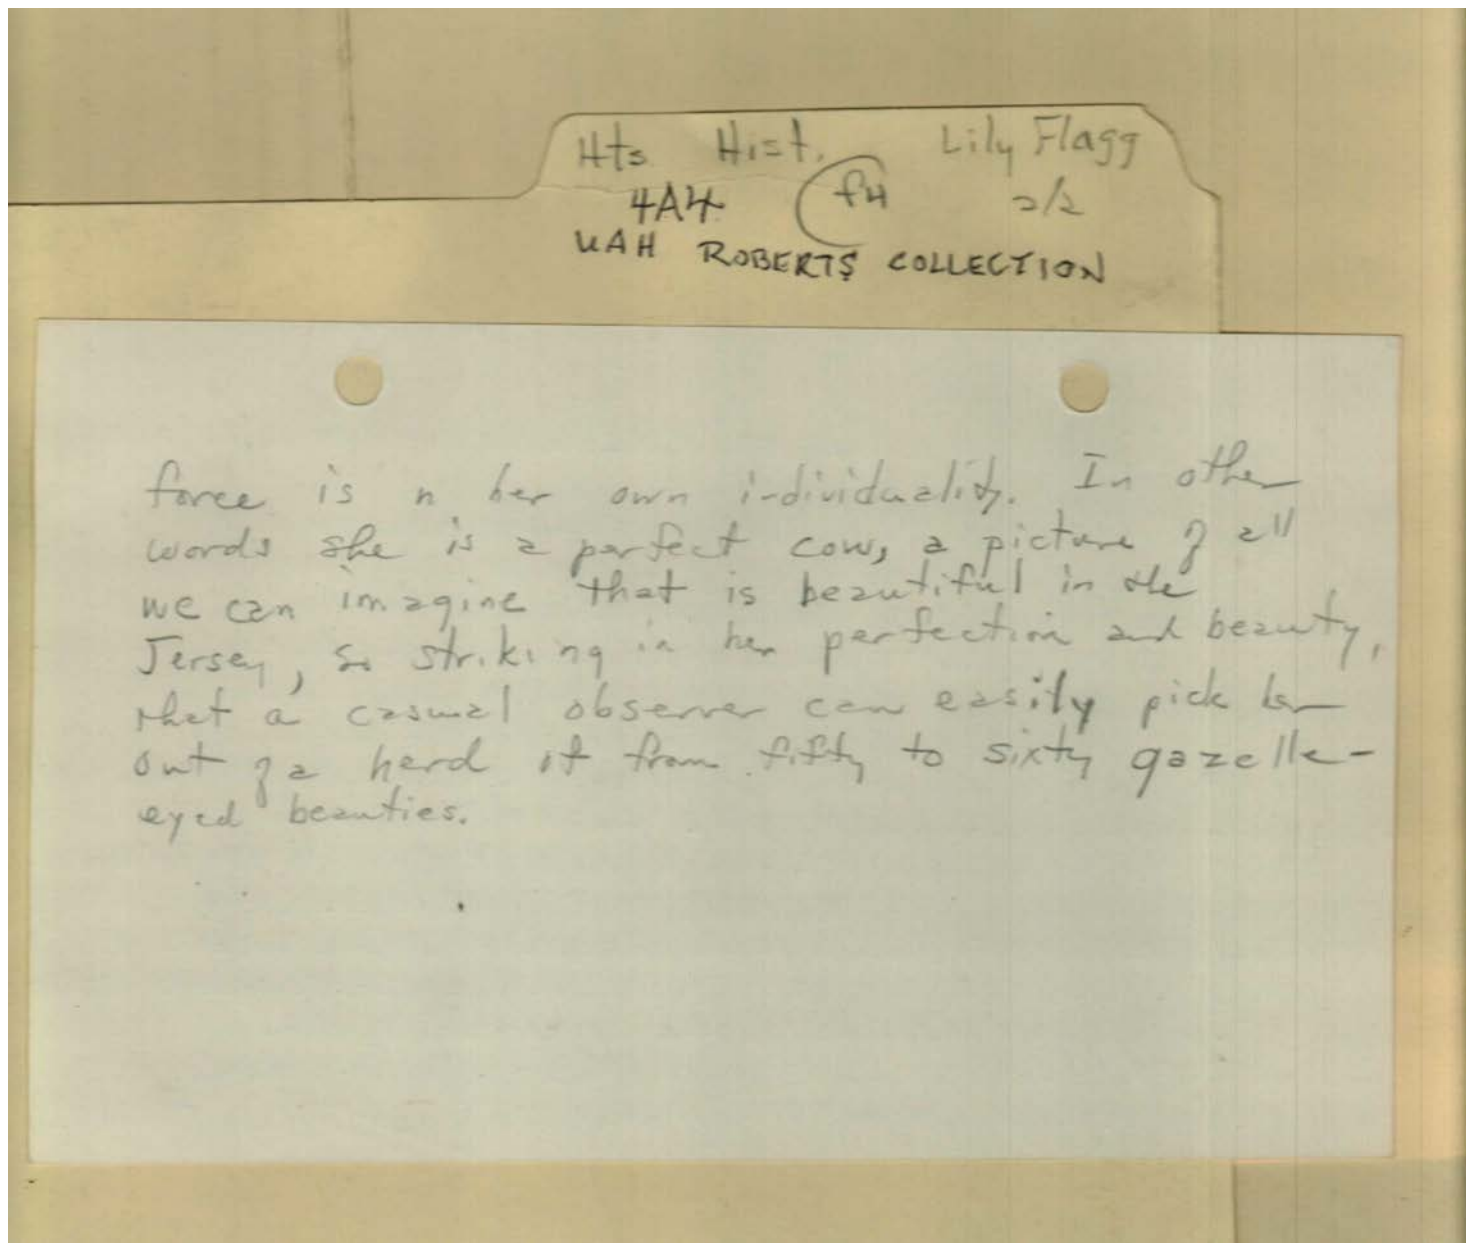 Hts Hist. Lily Flagg
4A4 f4 2/2
UAH ROBERTS COLLECTION
force is n her own individuality. In other
words she is a perfect cow, a picture of all
we can imagine that is beautiful in the
Jersey, so striking in her perfection and beauty,
that a casual observer can easily pick her
out of a herd of from fifty to sixty gazelle-
eyed beauties.